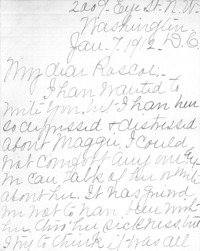 2009 Eye St. N.W.
Washington
Jan. 7, 1912 D.C.
My dear Rascoe:-
I have wanted to
write you, but I have been
so depressed & distressed
about Maggie, I could
not comfort any one
can talk of her or write
about her. It has grieved
me not to have been with
her, thro' her sickness, but
I try to think it was all